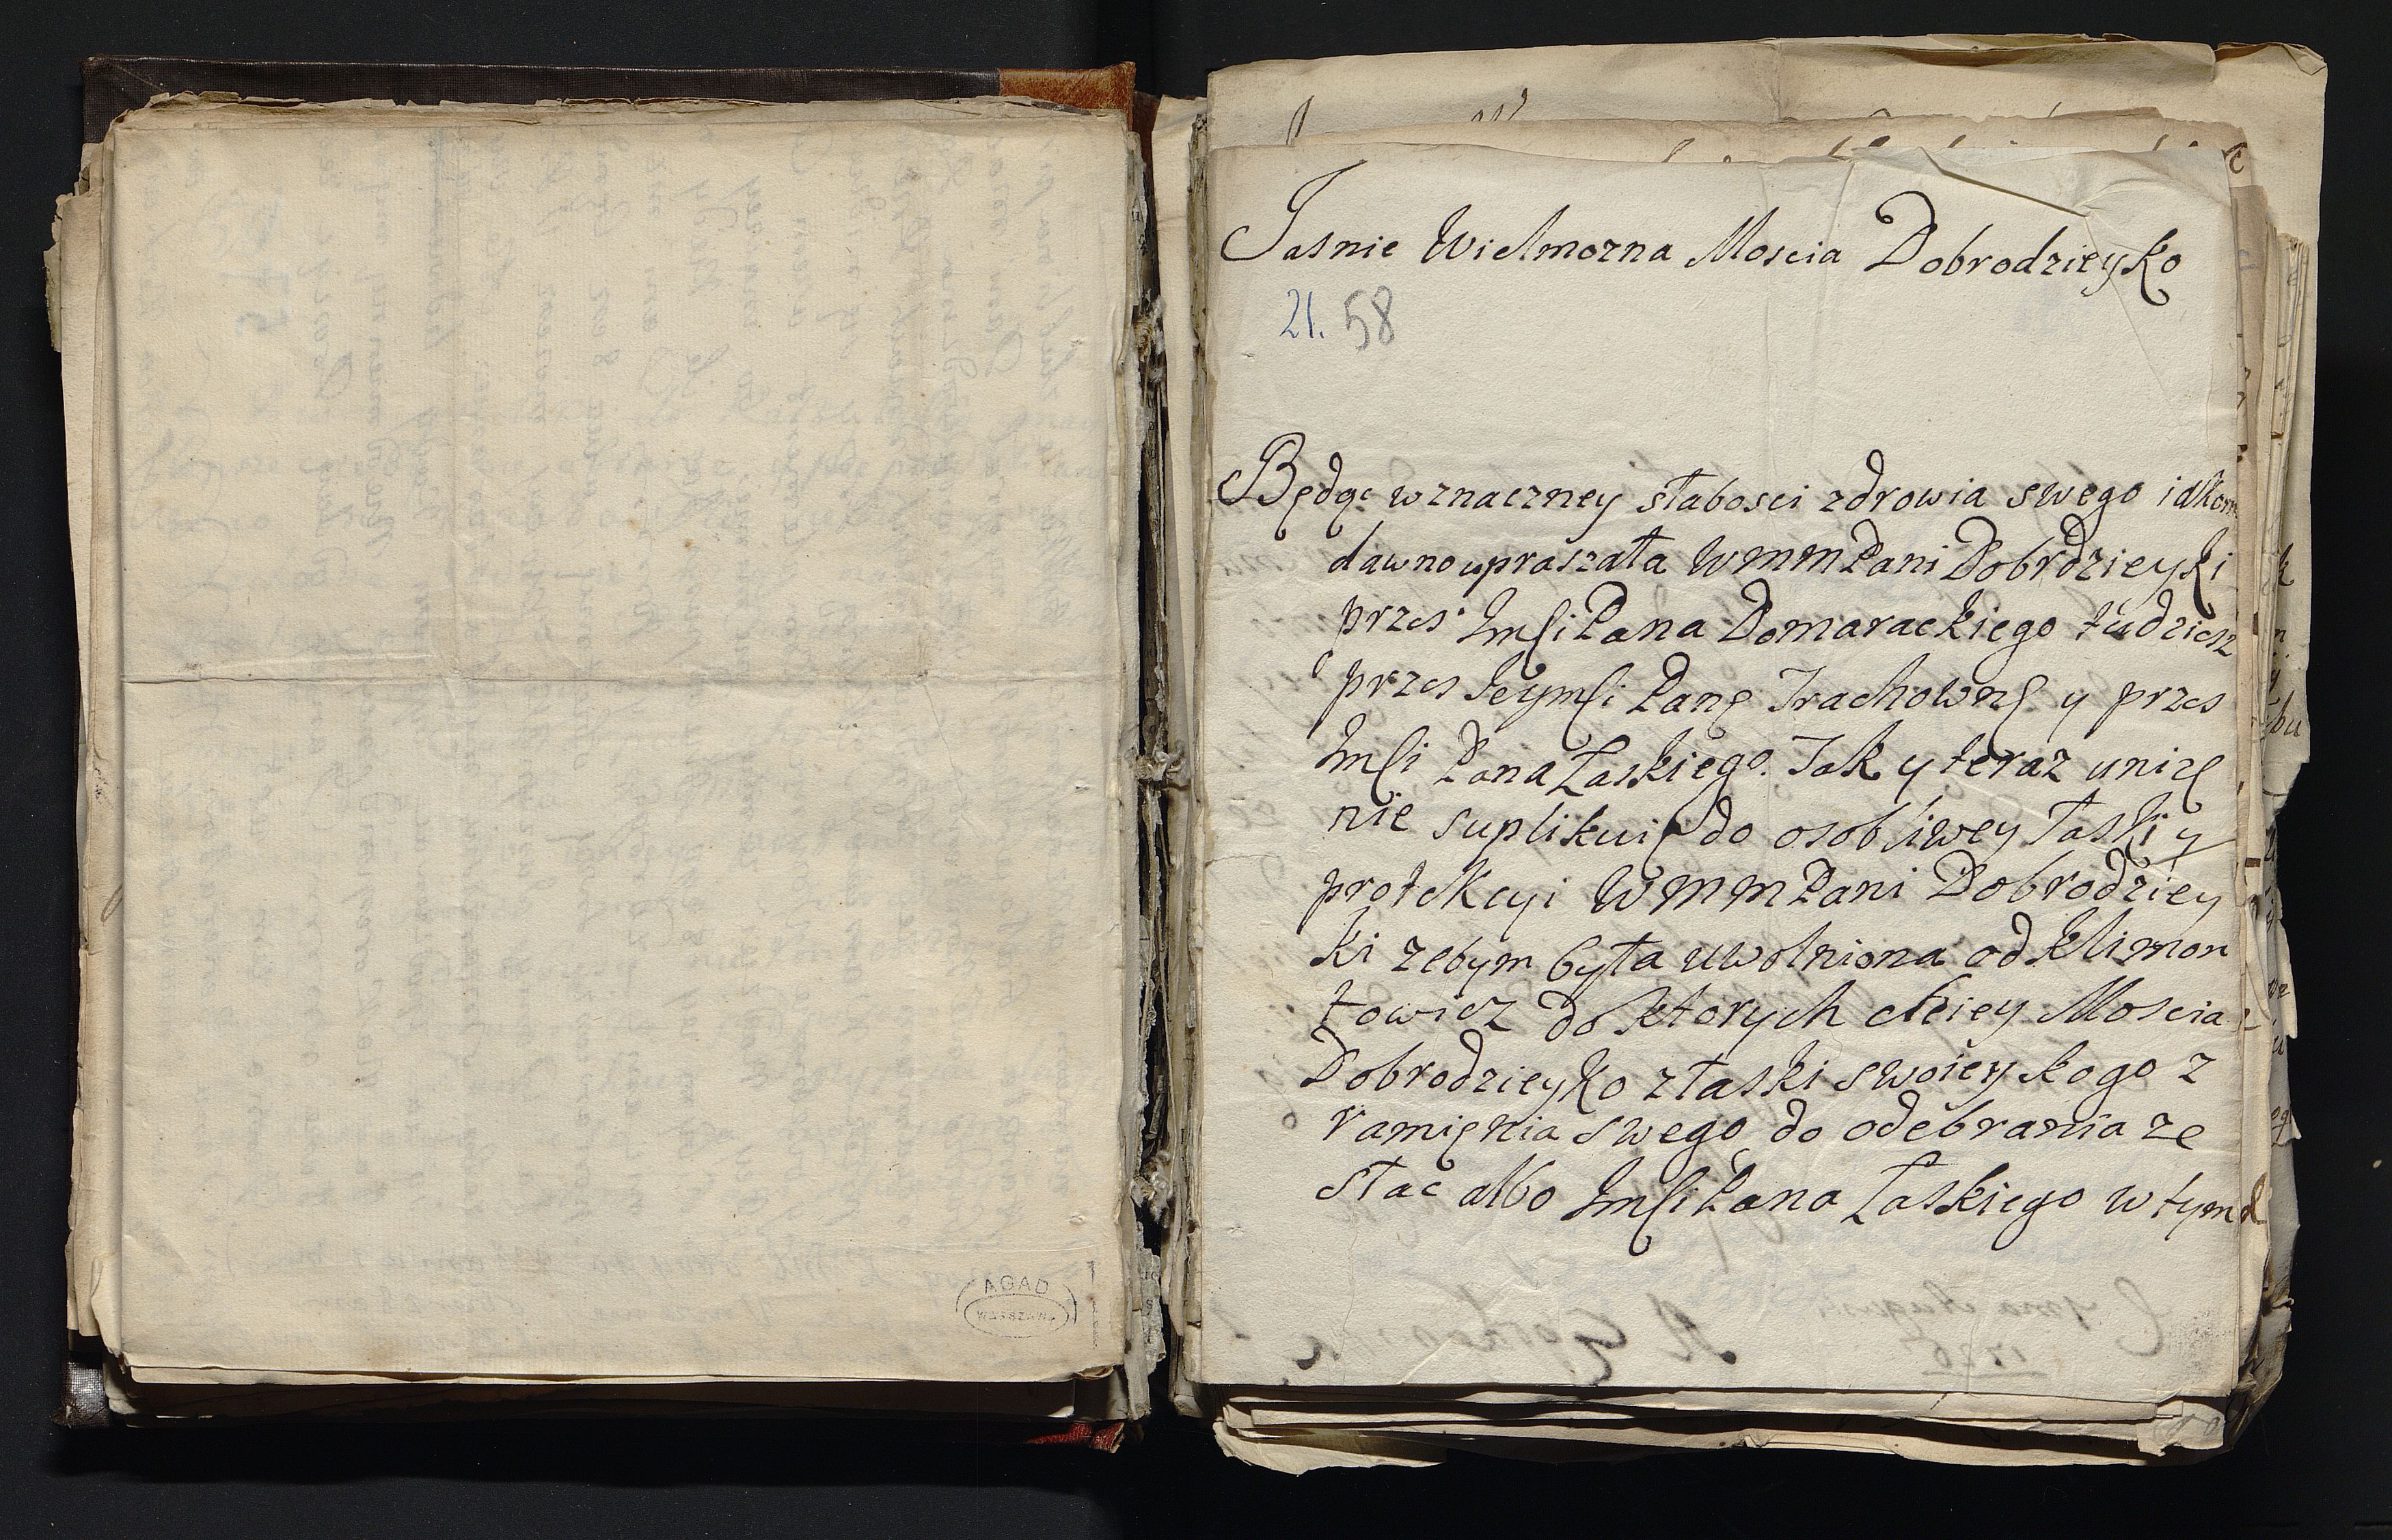 AGAD
WARSZAWA
Jasnie Wielmozna Moscia Dobrodzieyko
21. 58
Będąc w znaczney słabosci zdrowia swego iakom
dawno upraszała WMM Pani Dobrdzieyki
przes Jmści Pana Domarackiego tudziesz
przes Jeymści Panę Trachownę y przes
Jmści Pana Łaskiego. Tak y teraz unizę
nie suplikuię do osobliwey łaski y
protekcyi WMM Pani Dobrodziey
ki zebym była uwolniona od Klimon
towicz do ktorych chciey Moscia
Dobrodzieyko z łaski swoiey kogo z
ramięnia swego do odebrania ze
słac albo Jmści Pana Łaskiego w tym